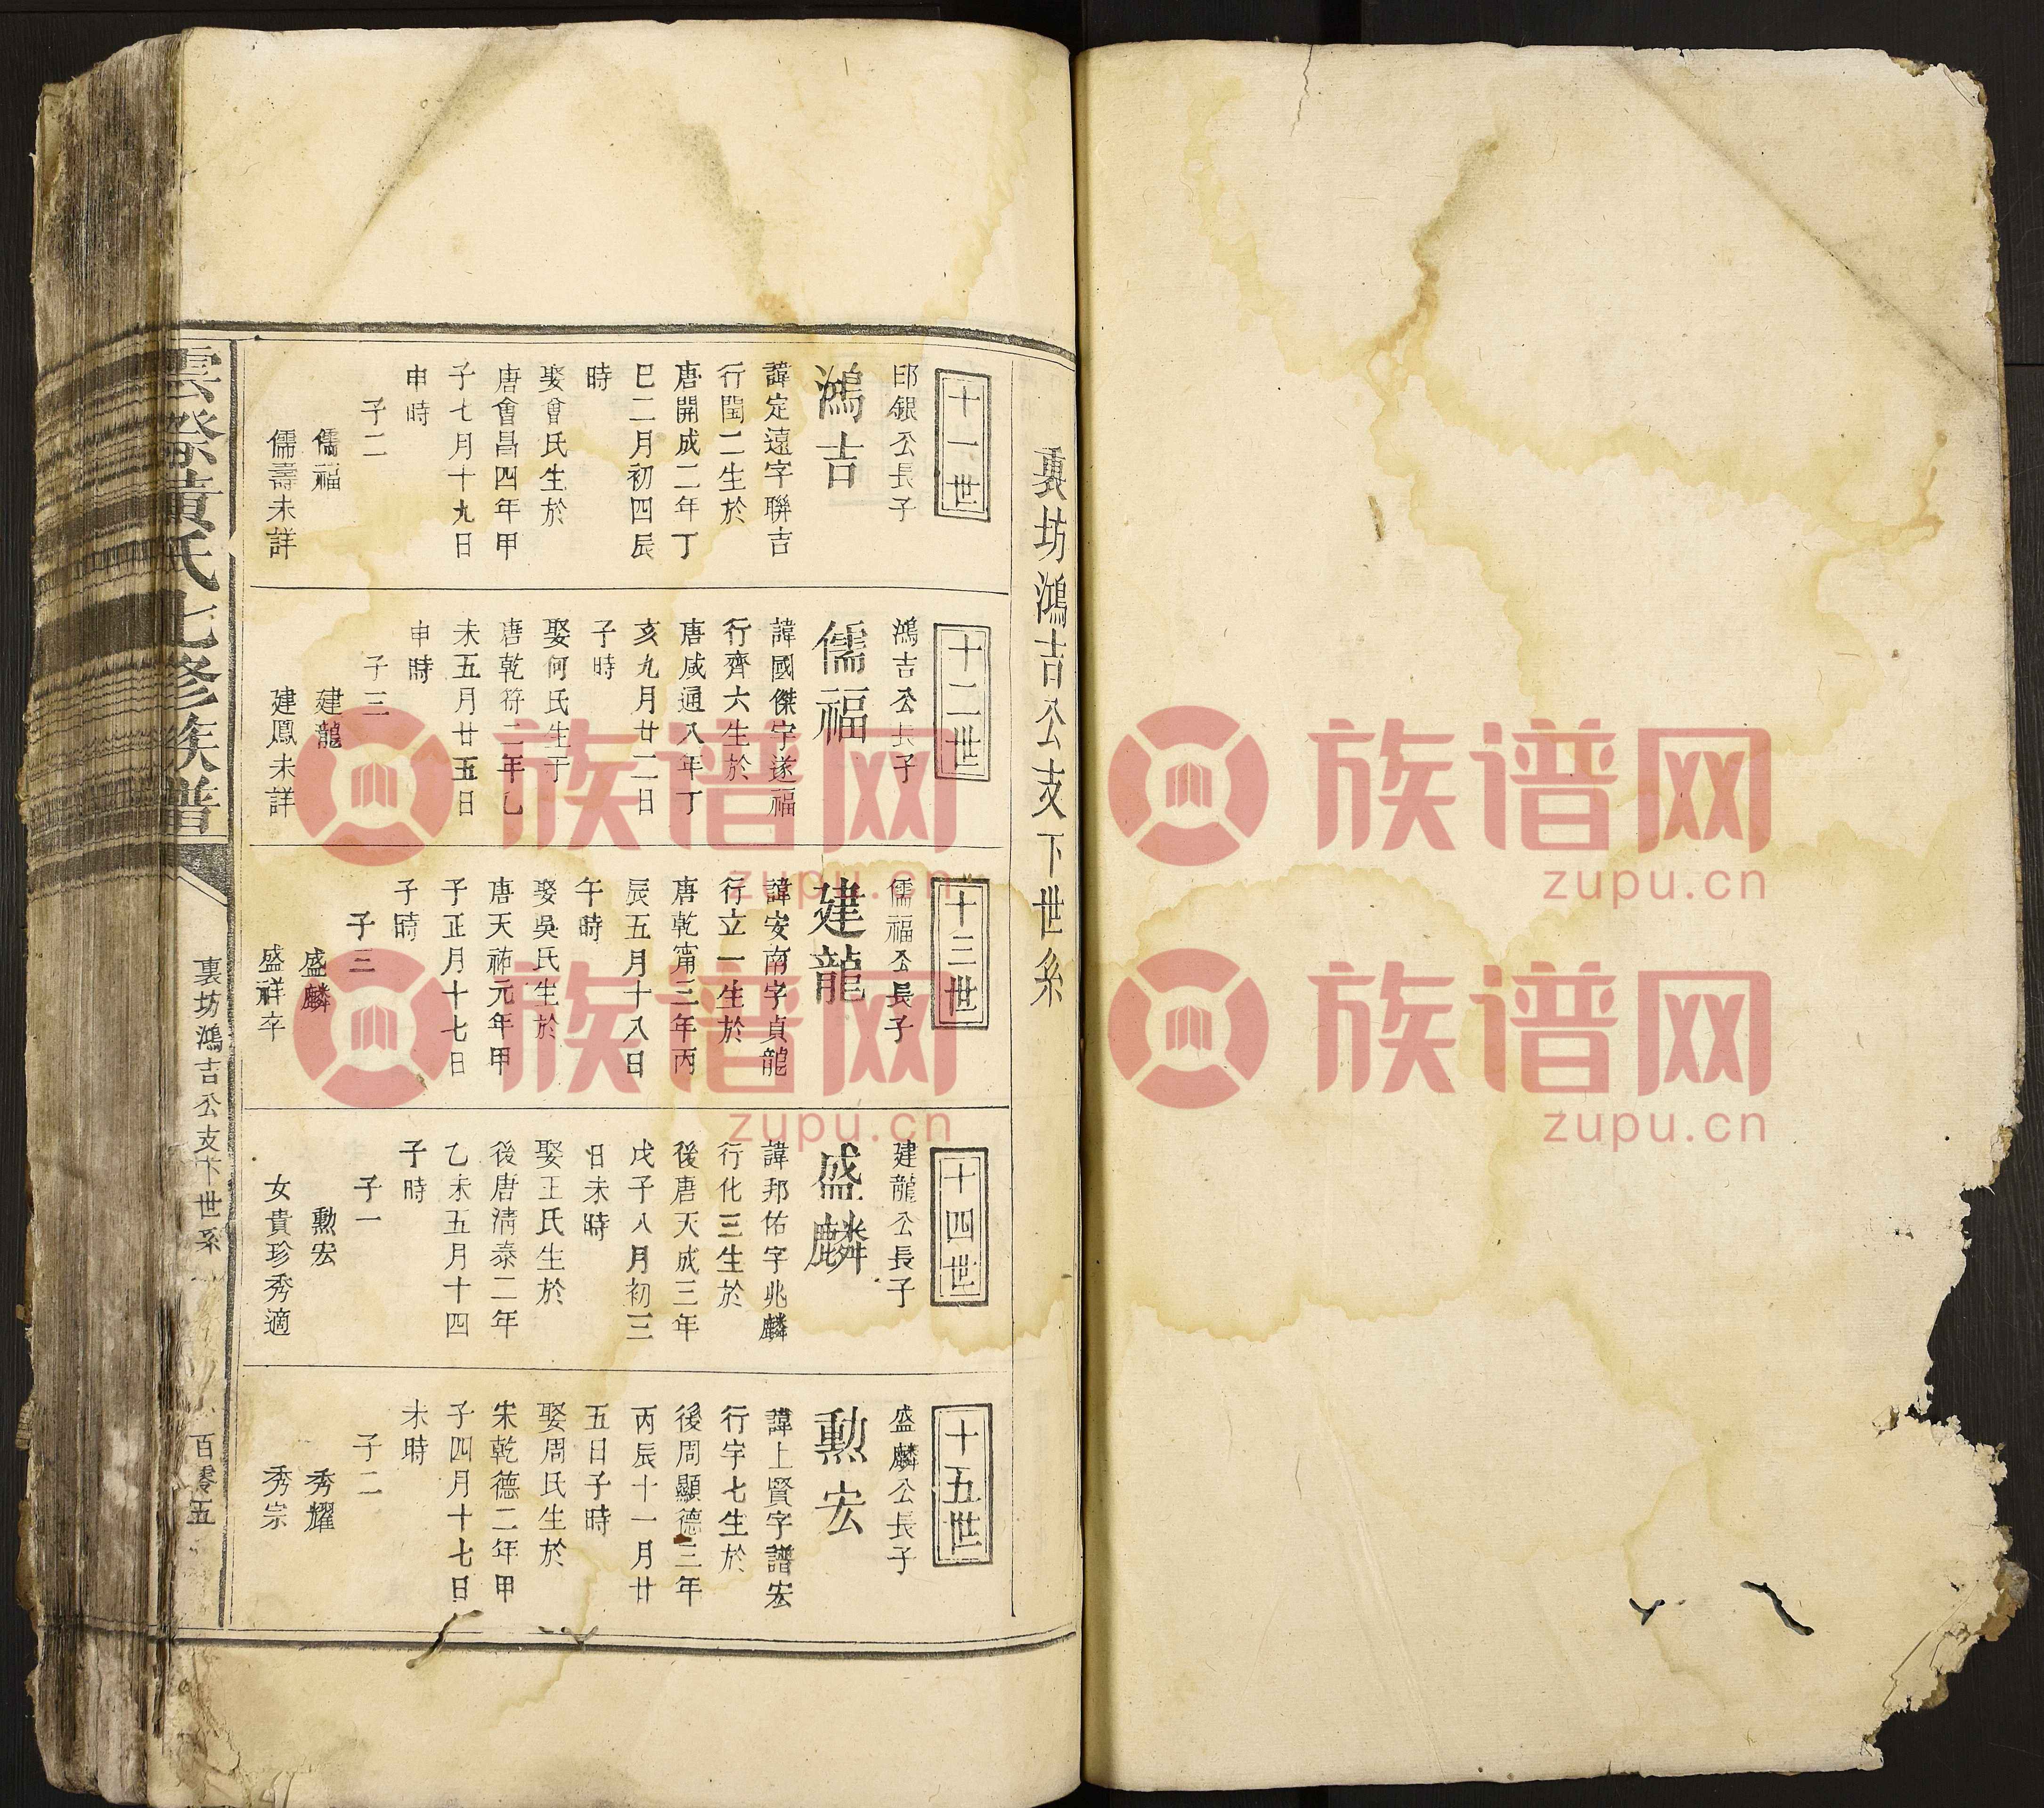 裏坊鴻吉公支下世系
十一世
邸銀公長子
鴻吉
諱定遠字聯吉
行閏二生於
唐開成二年丁
巳二月初四辰
時
娶曾氏生於
唐會昌四年甲
子七月十九日
申時
子二
儒福
儒壽未詳
十二世
鴻吉公長子
儒福
諱國傑字遂福
行齊六生於
唐咸通八年丁
亥九月廿二日
子時
娶何氏生于
唐乾符二年乙
未五月廿五日
申時
子三
建龍
建鳳未詳
十三世
儒福公長子
建龍
諱安南字貞龍
行立一生於
唐乾甯三年丙
辰五月十八日
午時
娶吳氏生於
唐天祐元年甲
子正月十七日
子時
子二
盛麟
盛祥卒
十四世
建龍公長子
盛麟
諱邦佑字兆麟
行化三生於
後唐天成三年
戊子八月初三
日未時
娶王氏生於
後唐清泰二年
乙未五月十四
子時
子一
勲宏
女貴珍秀適
十五世
盛麟公長子
勲宏
諱上賢字譜宏
行字七生於
後周顯德三年
丙辰十一月廿
五日子時
娶周氏生於
宋乾德二年甲
子四月十七日
未時
子二
秀耀
秀宗
黃氏七修族譜
裏坊鴻吉公支下世系
百零五
族谱网
zupu.cn
族谱网
zupu.cn
族谱网
zupu.cn
族谱网
zupu.cn